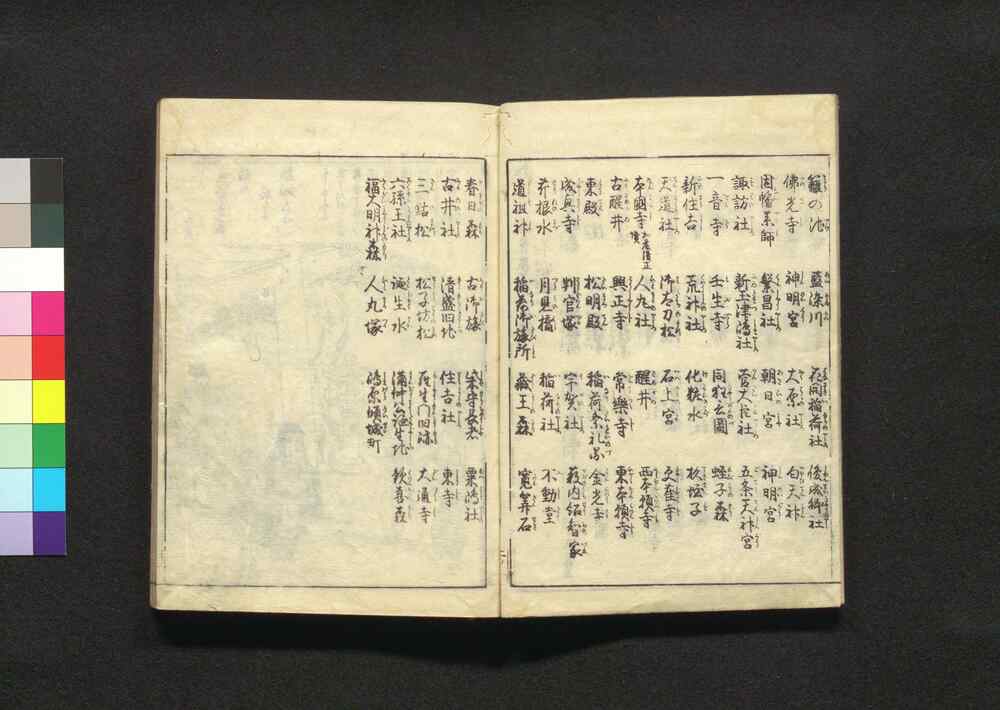 籬の池 藍染川 花開稲荷社 俊成卿社
佛光寺 神明宮 大原社 白天神
因幡薬師 繁昌社 朝日宮 神明宮
諏訪社 新玉津嶋社 菅大臣社 五条天神宮
一音寺 壬生寺 同狂言圖 蛭子森
新住吉 荒神社 化粧水 杦蛭子
天道社 御太刀松 石上宮 空也寺
本國寺 人丸社 醒井 西本願寺
古醒井 興正寺 常樂寺 東本願寺
東殿 松明殿 稲荷祭礼 金光寺
成興寺 判官塚 宇賀社 薮内紹智家
井根水 月見橋 稲荷社 不動堂
道祖神 稲荷御旅所 蔵王森 寛筭石
春日森 古御旅 朱守長者 粟嶋社
古井社 清盛旧地 住吉社 東寺
三鈷松 松子坊松 羅生門旧跡 大通寺
六孫王社 誕生水 満仲誕生地 歓喜森
福大明神森 人丸塚 嶋原傾城町